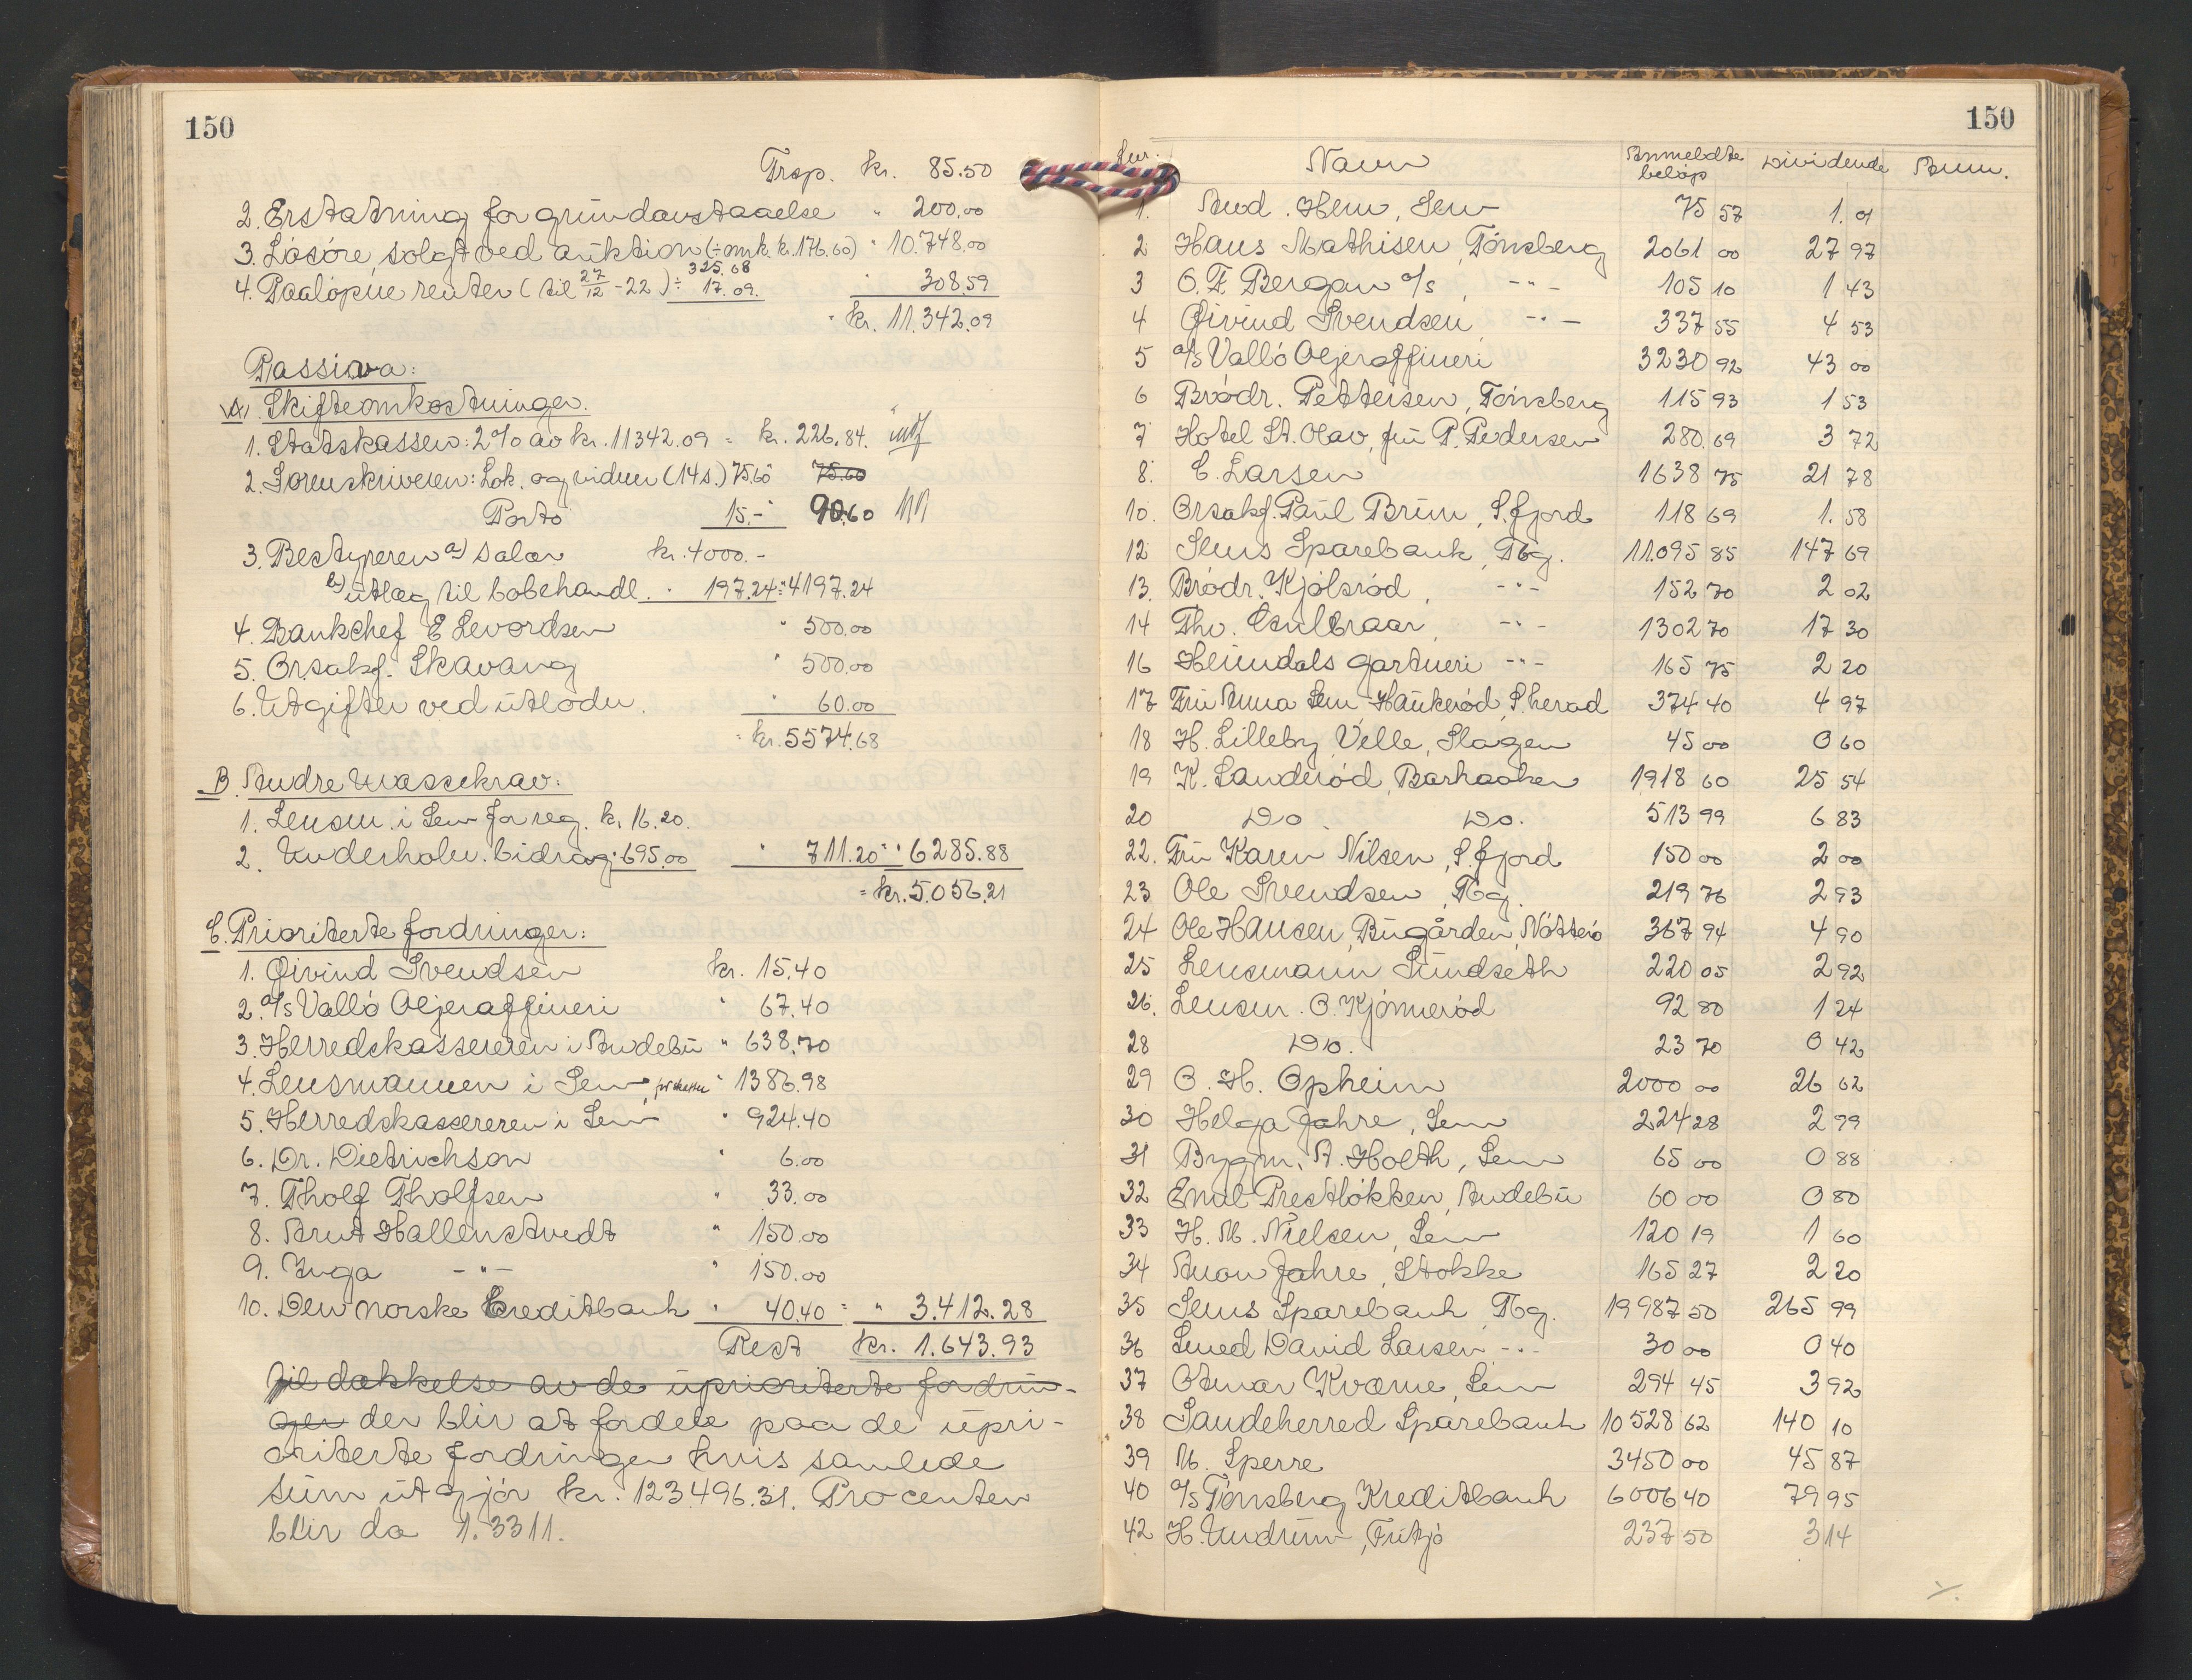 150
Trsp. kr. 85.50
2. Erstatning for grundavstaaelse " 200.00
3. Løsøre, solgt ved auktion (÷ omk. kr. 176.60) " 10.748.00
325.68
4. Paaløpne renter (til 27/12 -22) ÷ 17.09. " 308.59
" kr. 11.342.09
Passiva:
A. Skifteomkostninger.
1. Statskassen: 2% av kr. 11342.09 = kr. 226.84.
2. Sorenskriveren: Lok. og vidner (14 s.) 75.60 75.60
Porto 15.- " 90.60
3. Bestyreren a) salær kr. 4000.-
b) utlæg til bobehandl. " 197.24 = " 4197.24
4. Bankchef E Sevordsen " 500.00
5. Orsakf. Skavang " 500.00
6. Utgifter ved utlodn. " 60.00
= kr. 5574.68
B. Andre massekrav:
1. Lensm. i Sem for reg. k. 16.20.
2. Underholn. bidrag " 695.00 " 711.20 = " 6285.88
= kr. 5.056.21
C. Prioriterte fordringer:
1. Øivind Svendsen kr. 15.40
2. a/s Vallö Oljeraffineri " 67.40
3. Herredskassereren i Andebu " 638.70
4. Lensmannen i Sem, for skatter " 1386.98
5. Herredskassereren i Sem " 924.40
6. Dr. Dietrichson " 6.00
7. Tholf Tholfsen " 33.00
8. Arnt Hallenstvedt " 150.00
9. Inga -"- " 150.00
10. Den norske Creditbank " 40.40 = " 3.412.28
Rest kr. 1.643.93
til dækkelse av de uprioriterte fordrin-
ger der blir at fordele paa de upri-
oriterte fordringer hvis samlede
sum utgjør kr. 123.496.31. Procenten
blir da 1.3311.
150
Lnr. Navn Anmeldte beløp Dividende Anm.
1. And. Hem, Sem 75 57 1. 01
2 Hans Mathisen, Tönsberg 2061 00 27 97
3 O. F. Bergan a/s, -"- 105 10 1 43
4 Øivind Svendsen -"- 337 55 4 53
5 a/s Vallö Oljeraffineri 3230 92 43 00
6 Brödr. Pettersen, Tönsberg 115 93 1 53
7 Hotel St. Olav, fru P. Pedersen 280. 69 3 72
8. C. Larsen 1638 75 21 78
10. Orsakf. Paul Brun, S.fjord 118 69 1. 58
12 Sems Sparebank, Tbg. 11.095 85 147 69
13. Brödr. Kjölsröd, -"- 152 70 2 02
14 Thv. -"- 1302 70 17 30
16 Heimdals gartneri -"- 165 75 2 20
17 Fru Anna Sem Haukeröd, S.herad 374 40 4 97
18 H. Lilleby, Velle, Slagen 45 00 0 60
19 K. Sanderöd, Barkaaker 1918 60 25 54
20 Do. Do. 513 99 6 83
22. Fru Karen Nilsen, S.fjord 150 00 2 00
23 Ole Svendsen, Tbg. 219 76 2 93
24 Ole Hansen, Bugården, Nötterö 367 94 4 90
25 Lensmann Sundseth 220 05 2 92
26. Lensm. O. Kjönneröd 92 80 1 24
28 Do. 23 70 0 42
29 O. H. Opheim 2000 00 26 62
30 Helga Jahre, Sem 224 28 2 99
31 Bygm. A. Holth, Sem 65 00 0 88
32 Emil Prestlökken, Andebu 60 00 0 80
33 H. M. Nielsen, Sem 120 19 1 60
34 Anon Jahre, Stokke 165 27 2 20
35 Sems Sparebank, Tbg. 19 987 50 265 99
36 Smed David Larsen -"- 30 00 0 40
37 Otmar Kværne, Sem 294 45 3 92
38 Sandeherred Sparebank 10 528 62 140 10
39 M. Sperre 3450 00 45 87
40 a/s Tönsberg Kreditbank 6006 40 79 95
42 H. Undrum, Fritjö 237 50 3 14